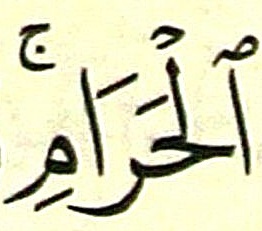 ٱلۡحَرَامِۚ